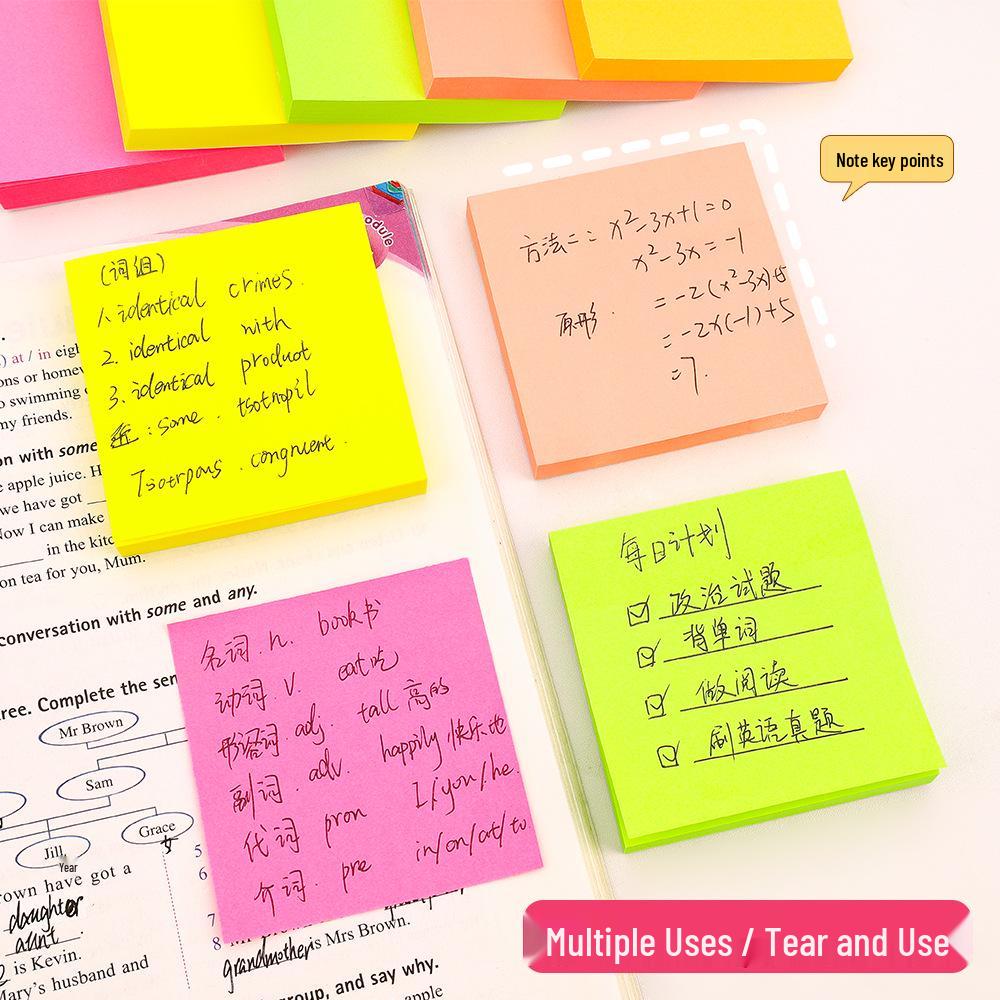 Note key points
odule
(词组)
1. identical crimes.
2. identical with
3. identical product
: some. tsotropil
Tsotrpous. congruent.
方法二: x²-3x+1=0
x²-3x=-1
原形. =-2(x²-3x)+5
=-2x(-1)+5
=7.
每日计划
政治试题
背单词
做阅读
刷英语真题
名词. n. book书
动词. v. eat吃
形容词. adj. tall 高的
副词. adv. happily 快乐地
代词 pron I/you/he.
介词. pre in/on/at/to.
) at / in eigh
ons or homew
o swimming
my friends.
on with some
e apple juice. H
we have got
Now I can make
in the kitc
on tea for you, Mum.
conversation with some and any.
ree. Complete the sen
Mr Brown
Sam
Jill
Year
Grace
女
5
6
7
8
own have got a
daughter
aunt
is Kevin.
Mary's husband and
grandmother is Mrs Brown.
roup, and say why.
apple
Multiple Uses / Tear and Use